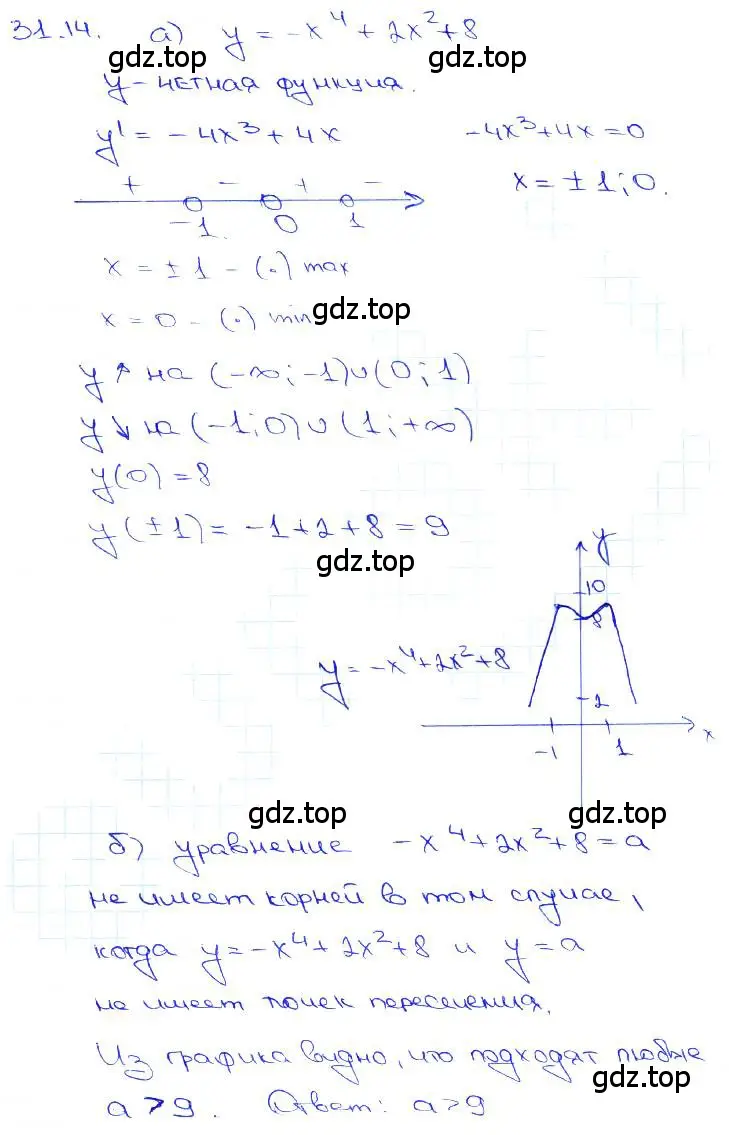 31.14. а) y = -x⁴ + 2x² + 8
gdz.top gdz.top
y - четная функция.
y' = -4x³ + 4x -4x³ + 4x = 0
+ - + - x = ± 1; 0.
-1. 0 1
x = ± 1 - (.) max
x = 0 - (.) min gdz.top
y ↑ на (-∞; -1) ∪ (0; 1)
y ↓ на (-1; 0) ∪ (1; +∞)
y(0) = 8
y(± 1) = -1 + 2 + 8 = 9
gdz.top
y
10
8
y = -x⁴ + 2x² + 8
2
-1 1 x
gdz.top gdz.top
б) уравнение -x⁴ + 2x² + 8 = a
не имеет корней в том случае,
когда y = -x⁴ + 2x² + 8 и y = a
не имеет точек пересечения.
Из графика видно, что подходят любые
gdz.top
a > 9. Ответ: a > 9